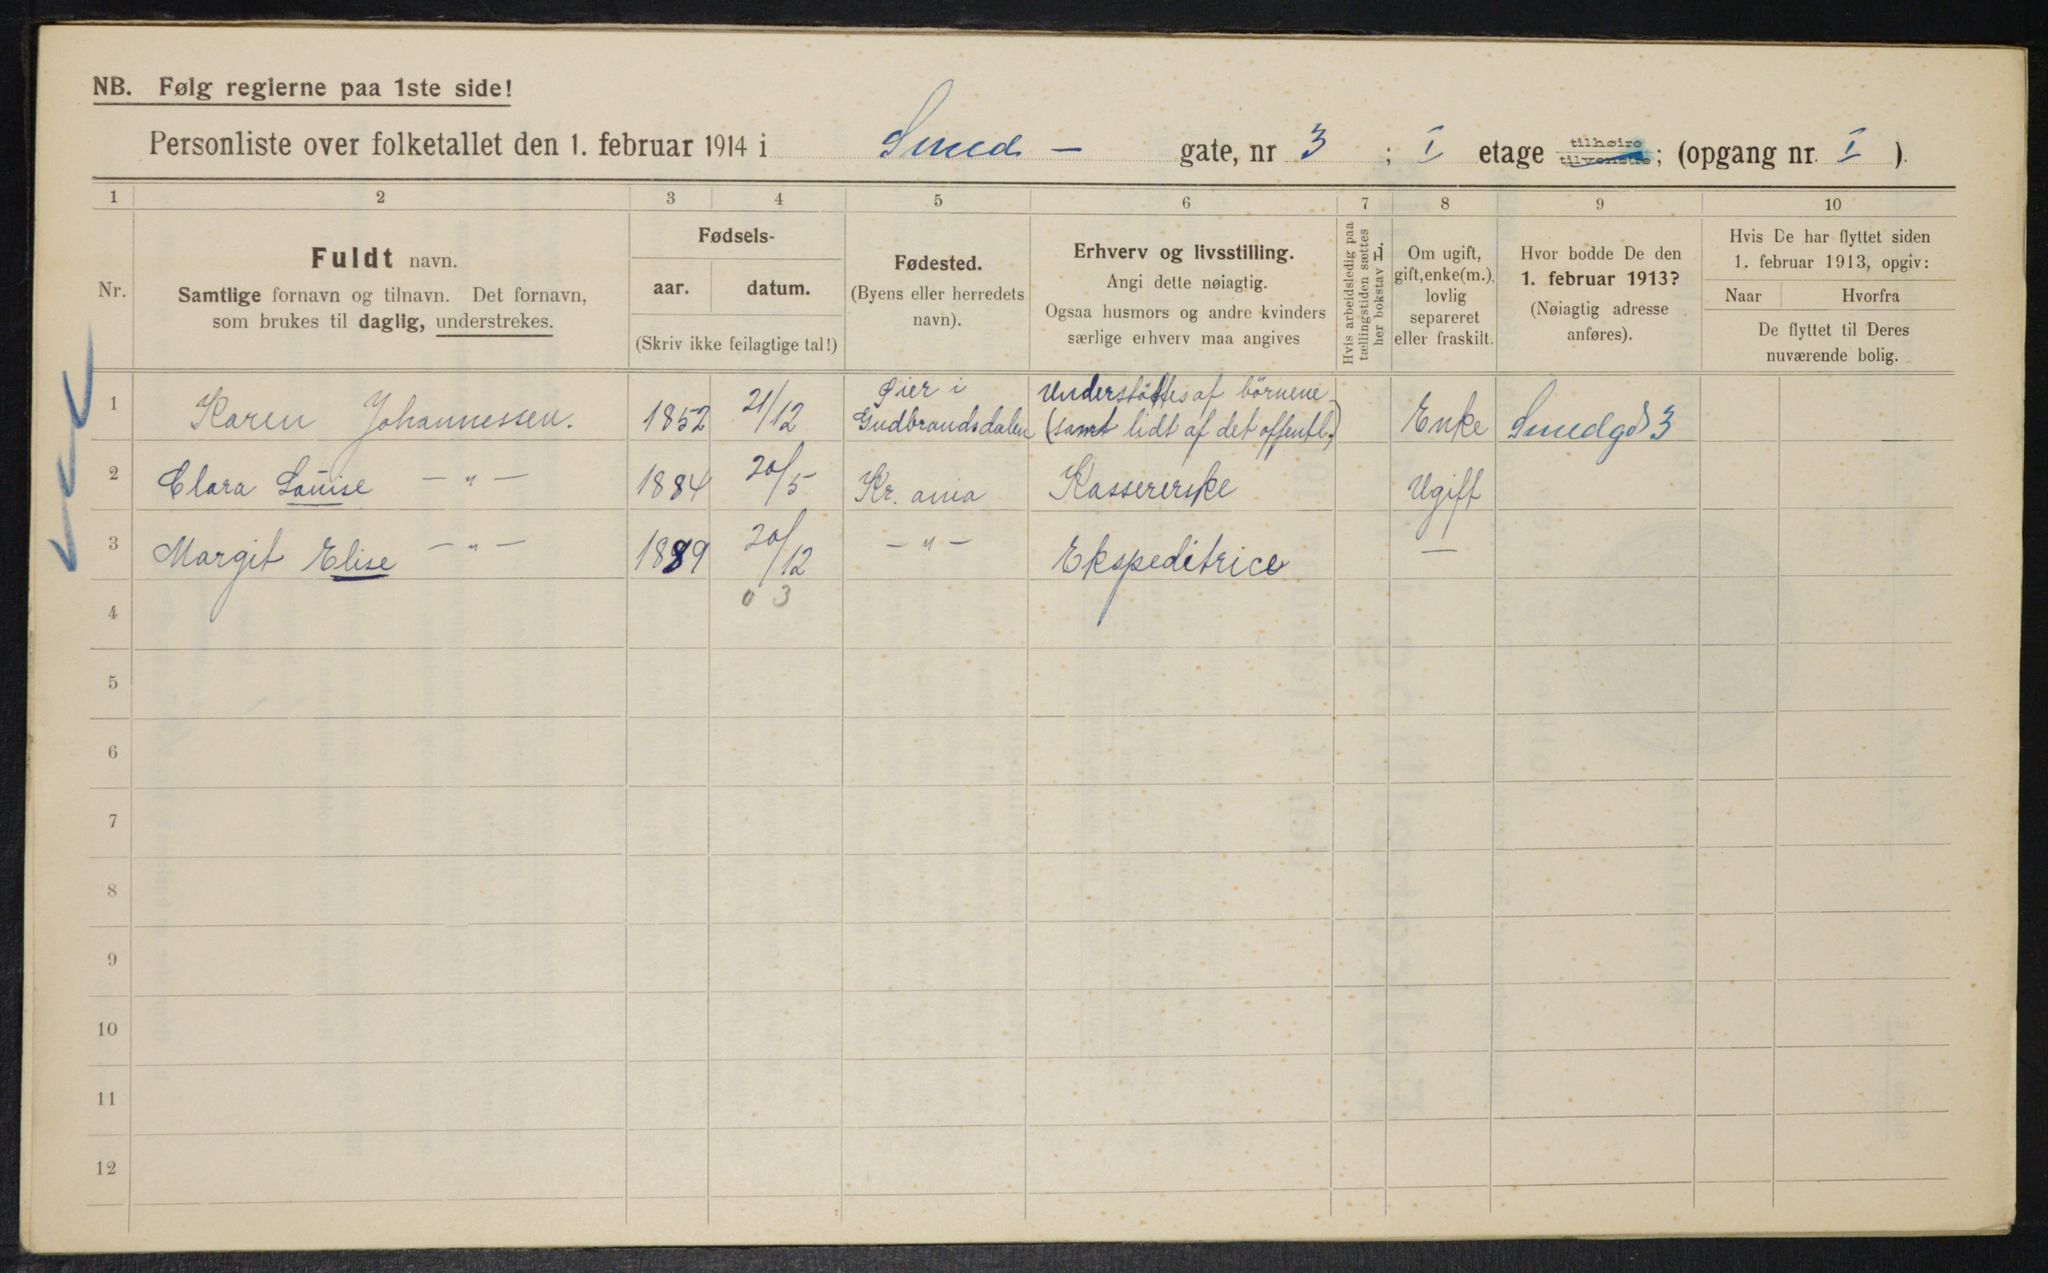 NB. Følg reglerne paa 1ste side!
Personliste over folketallet den 1. februar 1914 i Smed - gate, nr 3 ; I etage tilhøire tilvenstre; (opgang nr. I ).
1 2 3 4 5 6 7 8 9 10
Nr.
Fuldt navn.
Samtlige fornavn og tilnavn. Det fornavn,
som brukes til daglig, understrekes.
Fødsels-
aar. datum.
(Skriv ikke feilagtige tal!)
Fødested.
(Byens eller herredets
navn).
Erhverv og livsstilling.
Angi dette nøiagtig.
Ogsaa husmors og andre kvinders
særlige erhverv maa angives
Hvis arbeidsledig paa
tællingstiden sættes
her bokstav L.
Om ugift,
gift, enke(m.),
lovlig
separeret
eller fraskilt.
Hvor bodde De den
1. februar 1913?
(Nøiagtig adresse
anføres).
Hvis De har flyttet siden
1. februar 1913, opgiv:
Naar Hvorfra
De flyttet til Deres
nuværende bolig.
1 Karen Johannessen. 1852 21/12 Øier i Gudbrandsdalen Understöttes af börnene (samt lidt af det offentl.) Enke Smedgd 3
2 Clara Louise — " — 1884 20/5 Kr. ania Kassererske Ugift
3 Margit Elise — " — 1889 20/12 — " — Ekspeditrice —
0 3
4
5
6
7
8
9
10
11
12